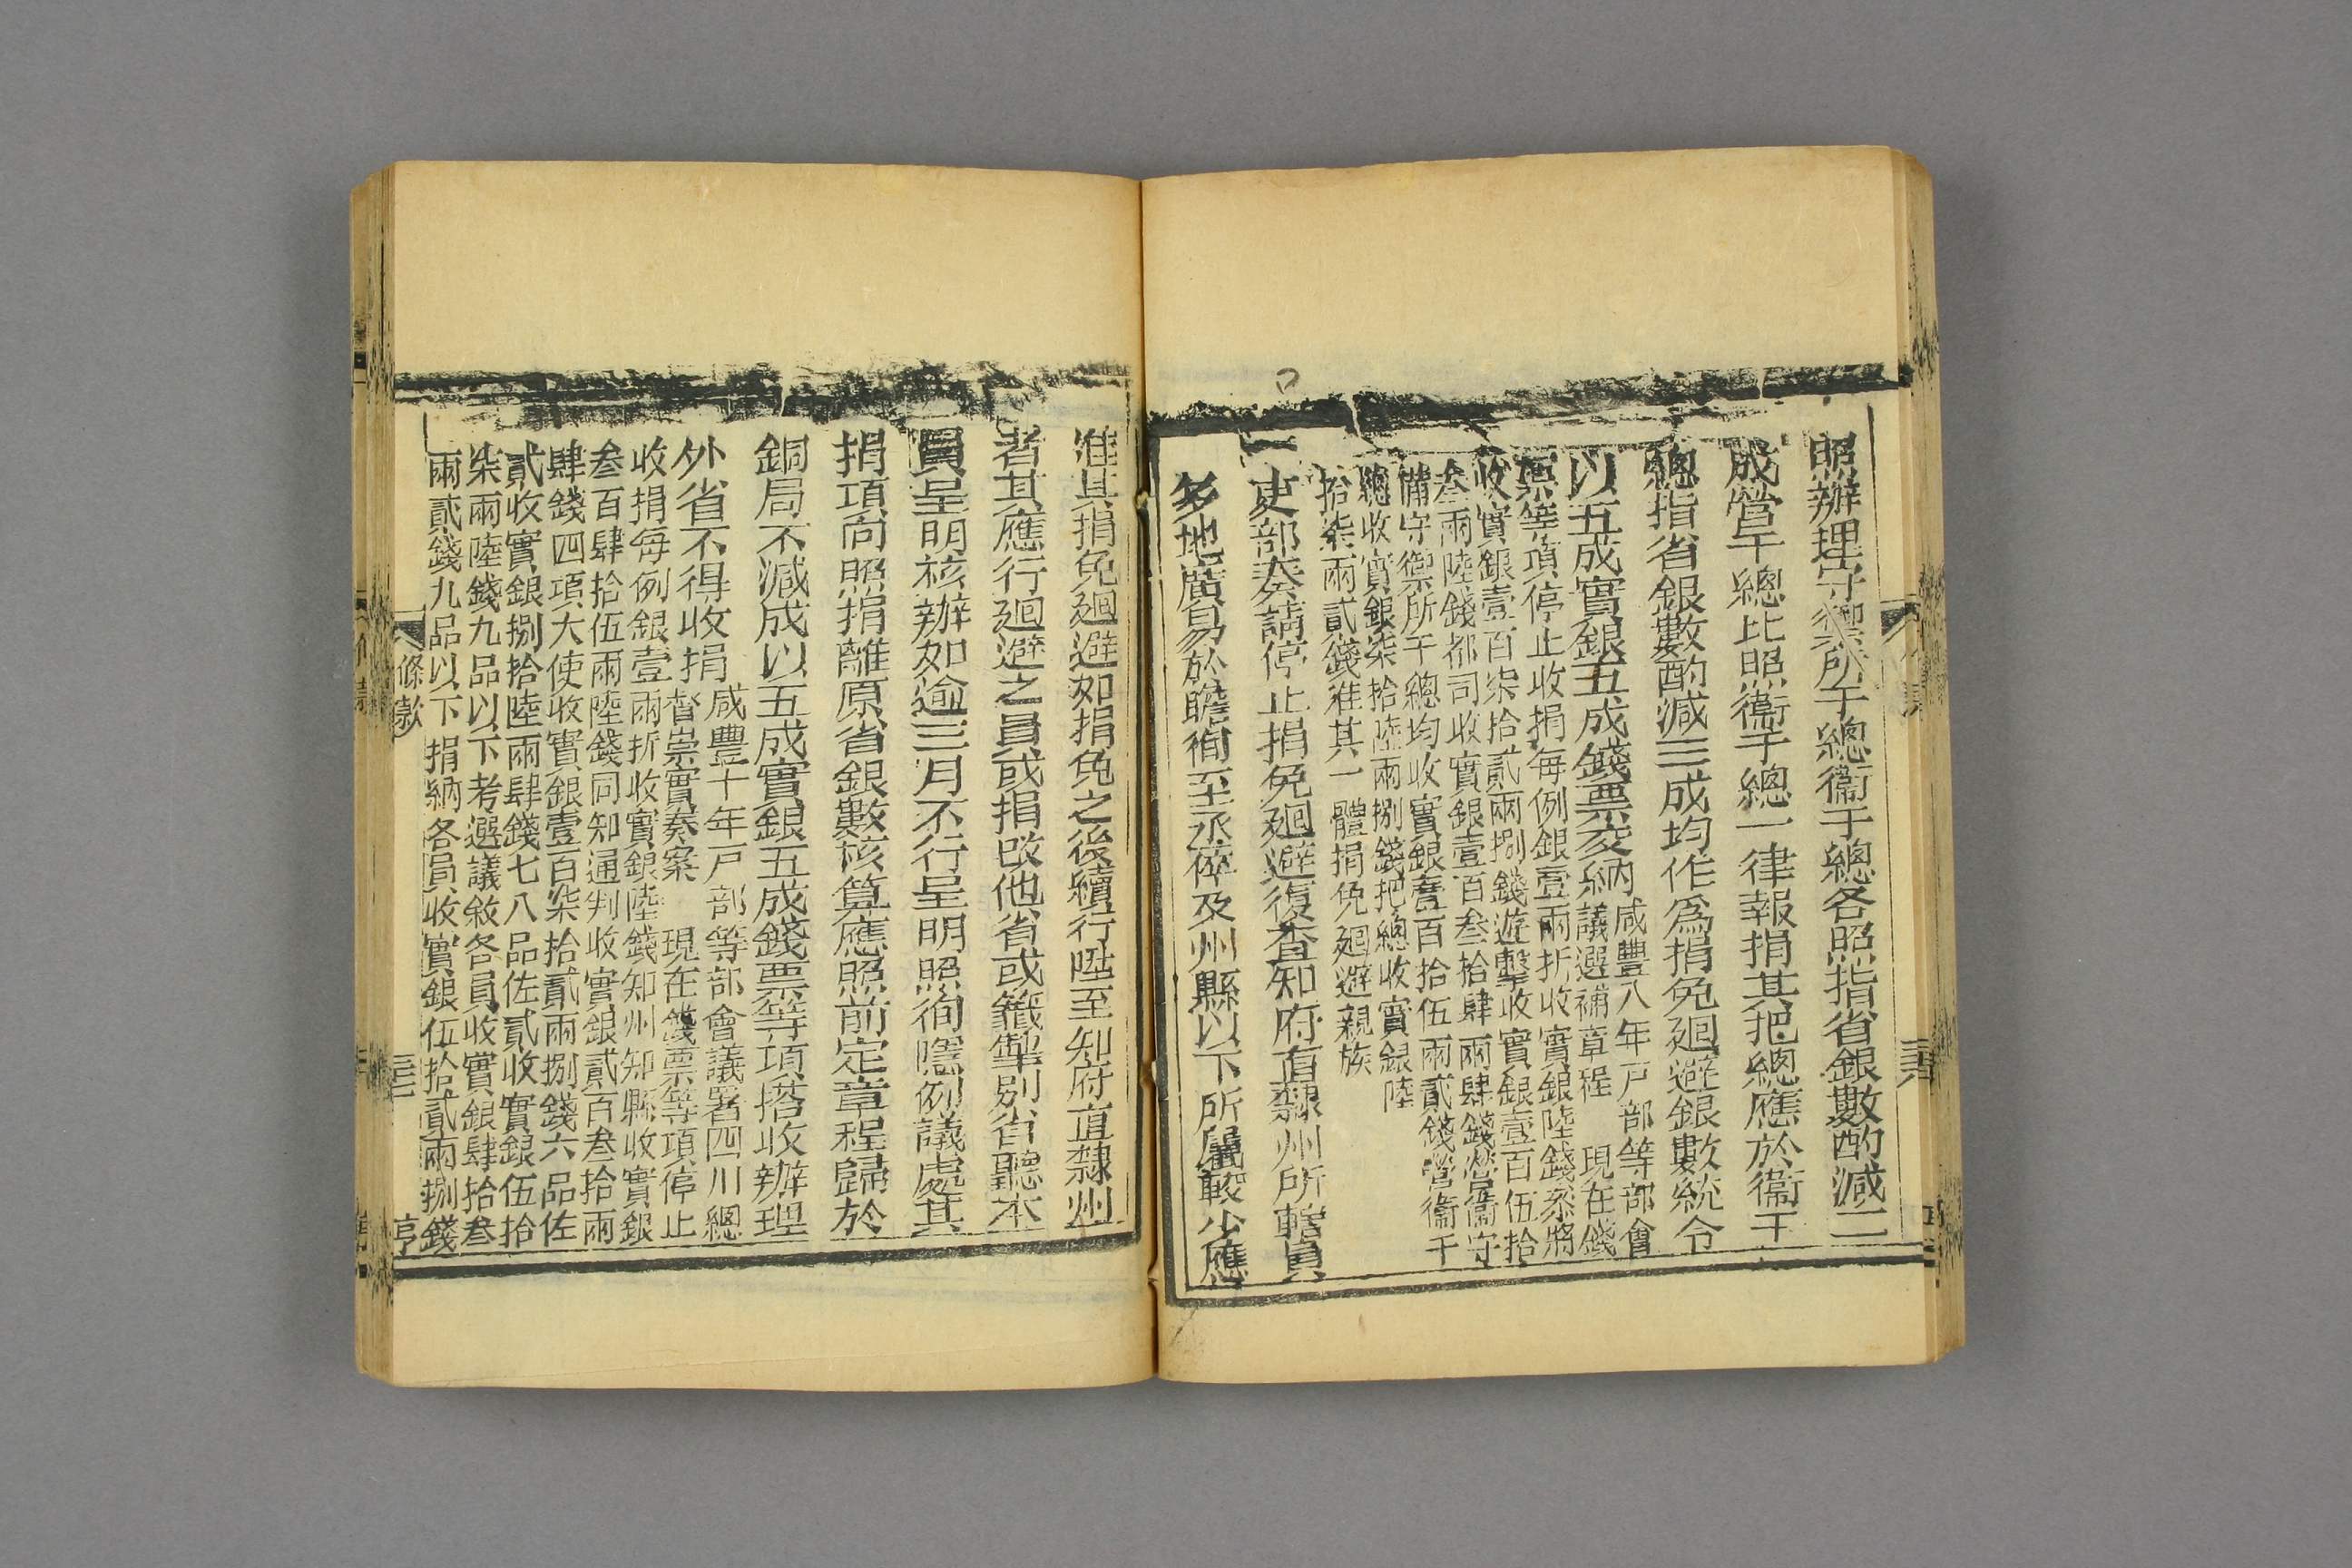 照辦理守禦所千總衞千總各照指省銀數酌減二
成營千總比照衞千總一律報捐其把總應於衞千
總指省銀數酌減三成均作爲捐免廻避銀數統令
以五成實銀五成錢票交納
咸豐八年戸部等部會
議選補章程 現在錢
票等項停止收捐每例銀壹兩折收實銀陸錢叅將
收實銀壹百柒拾貳兩捌錢遊擊收實銀壹百伍拾
叁兩陸錢都司收實銀壹百叁拾肆兩肆錢營衞守
備守禦所千總均收實銀壹百拾伍兩貳錢營衞千
總收實銀柒拾陸兩捌錢把總收實銀陸
拾柒兩貳錢准其一體捐免廻避親族
一
吏部奏請停止捐免廻避復查知府直隸州所轄員
多地廣易於瞻徇至丞倅及州縣以下所屬較少應
准其捐免廻避如捐免之後續行陞至知府直隸州
者其應行廻避之員或捐改他省或籤掣別省聽本
員呈明核辦如逾三月不行呈明照徇隱例議處其
捐項向照捐離原省銀數核算應照前定章程歸於
銅局不減成以五成實銀五成錢票等項搭收辦理
外省不得收捐
咸豐十年戸部等部會議署四川總
督崇實奏案 現在錢票等項停止
收捐每例銀壹兩折收實銀陸錢知州知縣收實銀
叁百肆拾伍兩陸錢同知通判收實銀貳百叁拾兩
肆錢四項大使收實銀壹百柒拾貳兩捌錢六品佐
貳收實銀捌拾陸兩肆錢七八品佐貳收實銀伍拾
柒兩陸錢九品以下考選議敘各員收實銀肆拾叁
兩貳錢九品以下捐納各員收實銀伍拾貳兩捌錢
條款
亨